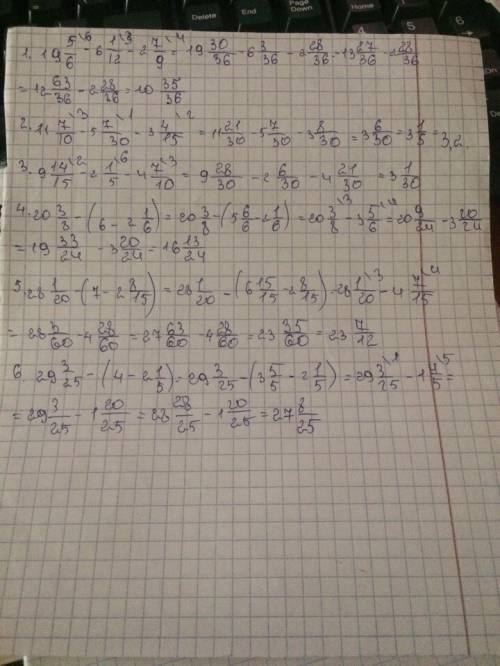 1. 19 5/6 \6 - 6 1/12 \3 - 2 7/9 \4 = 19 30/36 - 6 3/36 - 2 28/36 = 13 27/36 - 2 28/36
= 12 63/36 - 2 28/36 = 10 35/36
2. 11 7/10 \3 - 5 7/30 \1 - 3 4/15 \2 = 11 21/30 - 5 7/30 - 3 8/30 = 3 6/30 = 3 1/5 = 3,2
3. 9 14/15 \2 - 2 1/5 \6 - 4 7/10 \3 = 9 28/30 - 2 6/30 - 4 21/30 = 3 1/30
4. 20 3/8 - (6 - 2 1/6) = 20 3/8 - (5 6/6 - 2 1/6) = 20 3/8 \3 - 3 5/6 \4 = 20 9/24 - 3 20/24
= 19 33/24 - 3 20/24 = 16 13/24
5. 28 1/20 - (7 - 2 8/15) = 28 1/20 - (6 15/15 - 2 8/15) = 28 1/20 \3 - 4 7/15 \4
= 28 3/60 - 4 28/60 = 27 63/60 - 4 28/60 = 23 35/60 = 23 7/12
6. 29 3/25 - (4 - 2 1/5) = 29 3/25 - (3 5/5 - 2 1/5) = 29 3/25 \1 - 1 4/5 \5 =
= 29 3/25 - 1 20/25 = 28 28/25 - 1 20/25 = 27 8/25
Delete
End
Page Down